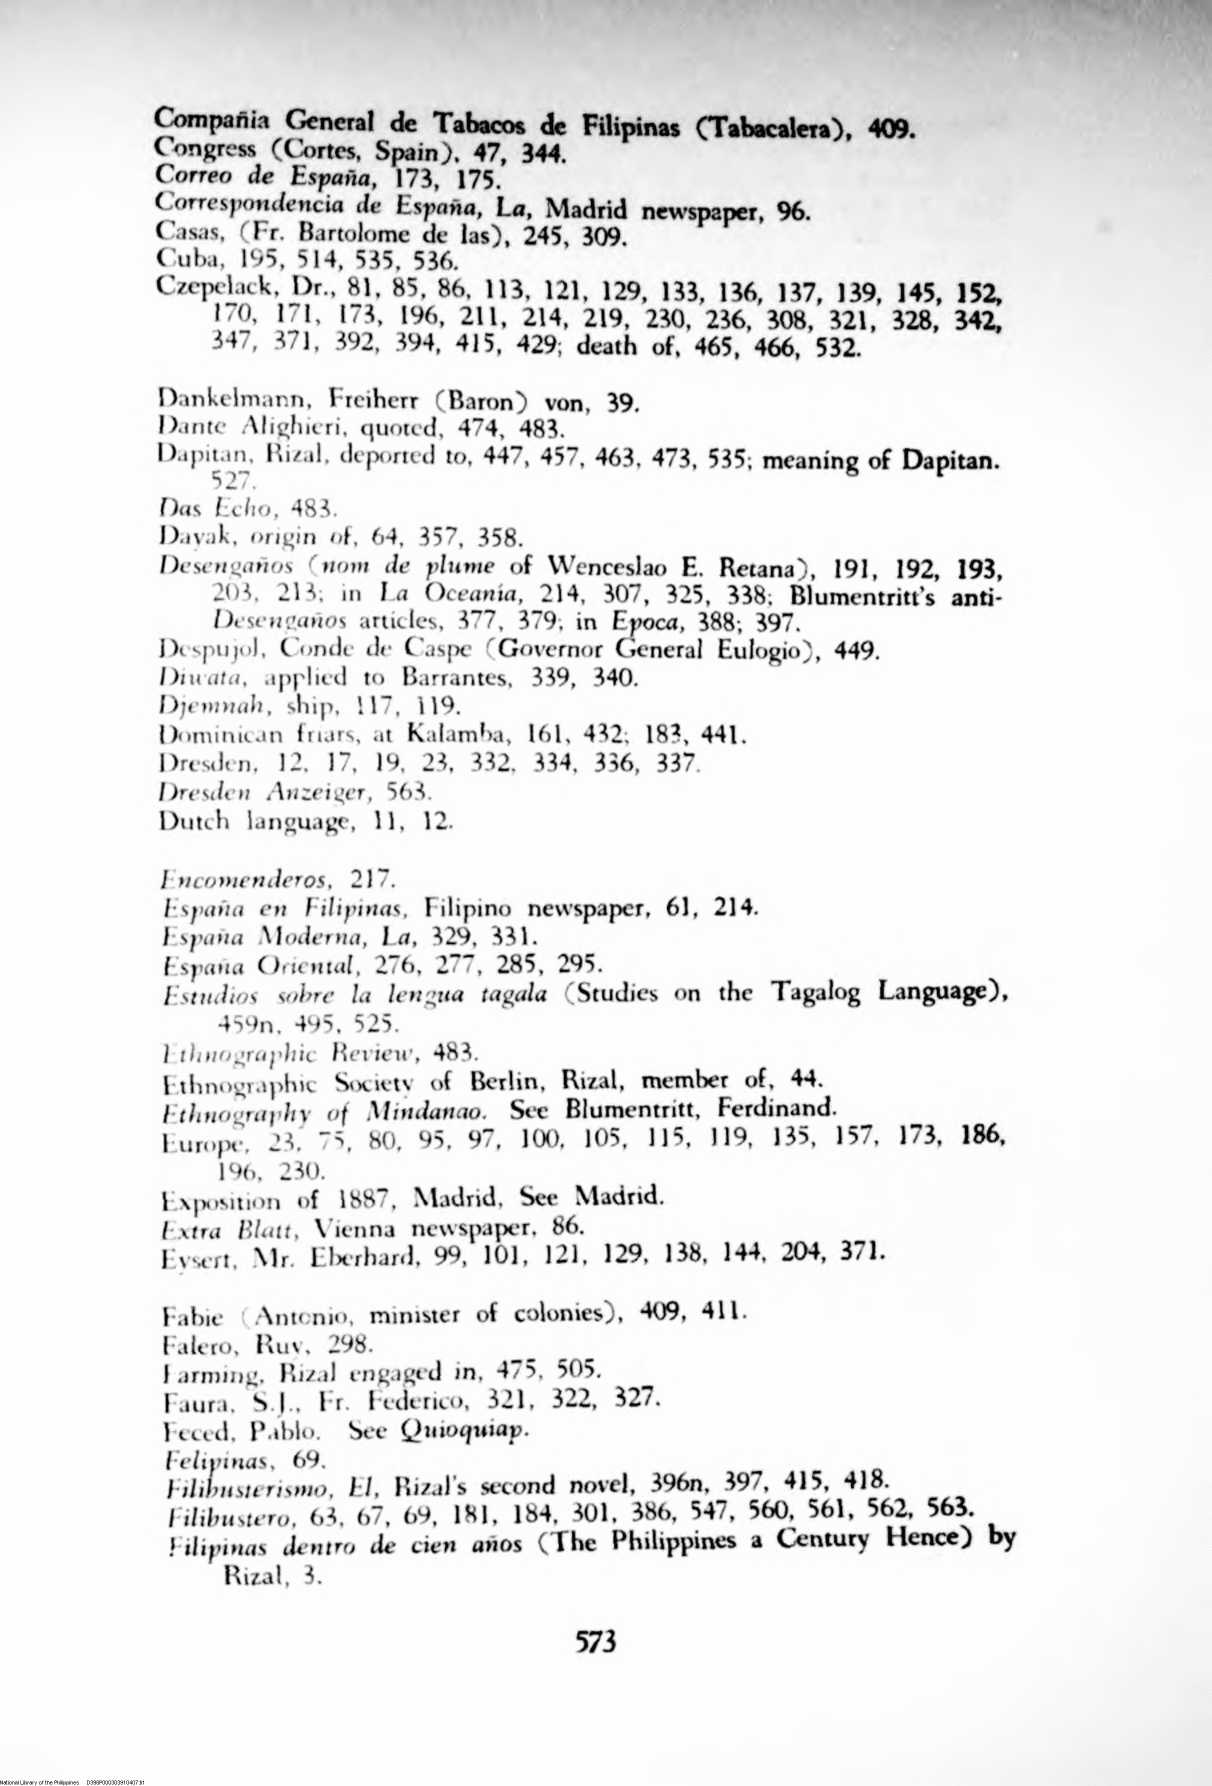 Compañia General de Tabacos de Filipinas (Tabacalera), 409.
Congress (Cortes, Spain), 47, 344.
Correo de España, 173, 175.
Correspondencia de España, La, Madrid newspaper, 96.
Casas, (Fr. Bartolome de las), 245, 309.
Cuba, 195, 514, 535, 536.
Czepelack, Dr., 81, 85, 86, 113, 121, 129, 133, 136, 137, 139, 145, 152,
170, 171, 173, 196, 211, 214, 219, 230, 236, 308, 321, 328, 342,
347, 371, 392, 394, 415, 429; death of, 465, 466, 532.
Dankelmann, Freiherr (Baron) von, 39.
Dante Alighieri, quoted, 474, 483.
Dapitan, Rizal, deported to, 447, 457, 463, 473, 535; meaning of Dapitan.
527.
Das Echo, 483.
Dayak, origin of, 64, 357, 358.
Desengaños (nom de plume of Wenceslao E. Retana), 191, 192, 193,
203, 213; in La Oceanía, 214, 307, 325, 338; Blumentritt's anti-
Desengaños articles, 377, 379; in Epoca, 388; 397.
Despujol, Conde de Caspe (Governor General Eulogio), 449.
Diwata, applied to Barrantes, 339, 340.
Djemnah, ship, 117, 119.
Dominican friars, at Kalamba, 161, 432; 183, 441.
Dresden, 12, 17, 19, 23, 332, 334, 336, 337.
Dresden Anzeiger, 563.
Dutch language, 11, 12.
Encomenderos, 217.
España en Filipinas, Filipino newspaper, 61, 214.
España Moderna, La, 329, 331.
España Oriental, 276, 277, 285, 295.
Estudios sobre la lengua tagala (Studies on the Tagalog Language),
459n, 495, 525.
Ethnographic Review, 483.
Ethnographic Society of Berlin, Rizal, member of, 44.
Ethnography of Mindanao. See Blumentritt, Ferdinand.
Europe, 23, 75, 80, 95, 97, 100, 105, 115, 119, 135, 157, 173, 186,
196, 230.
Exposition of 1887, Madrid, See Madrid.
Extra Blatt, Vienna newspaper, 86.
Eysert, Mr. Eberhard, 99, 101, 121, 129, 138, 144, 204, 371.
Fabie (Antonio, minister of colonies), 409, 411.
Falero, Ruy, 298.
Farming, Rizal engaged in, 475, 505.
Faura, S.J., Fr. Federico, 321, 322, 327.
Feced, Pablo. See Quioquiap.
Felipinas, 69.
Filibusterismo, El, Rizal's second novel, 396n, 397, 415, 418.
Filibustero, 63, 67, 69, 181, 184, 301, 386, 547, 560, 561, 562, 563.
Filipinas dentro de cien años (The Philippines a Century Hence) by
Rizal, 3.
573
National Library of the Philippines